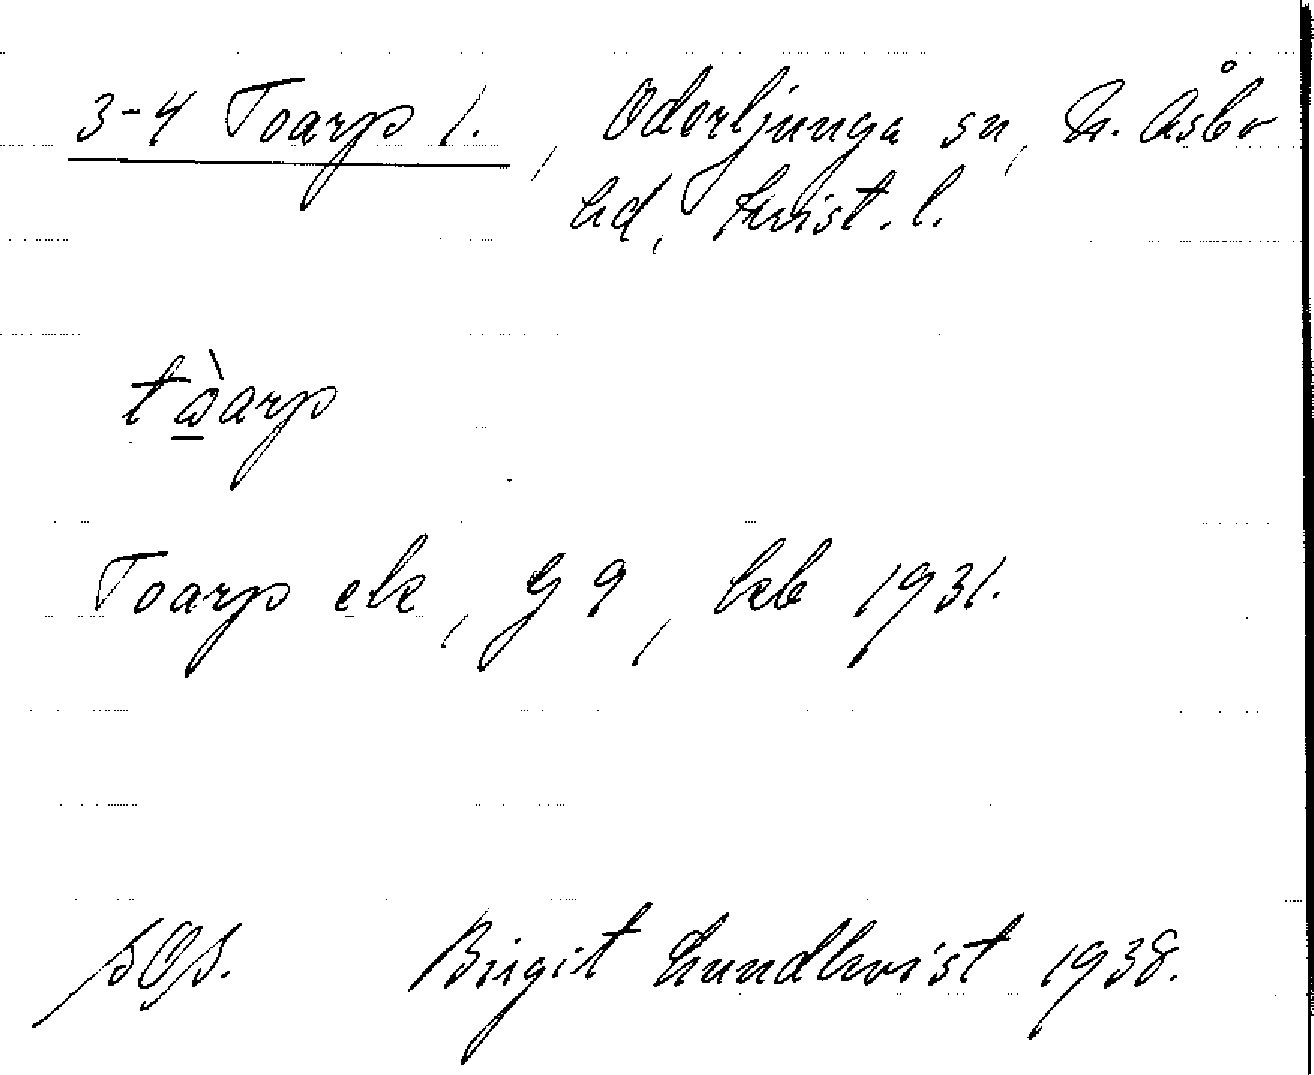 3-4 Toarp 1., Oderljunga sn, N. Åsbo
hd, Krist. l.
tòarp
Toarp ek, G 9, kb 1931.
Birgit Lundkvist 1938.